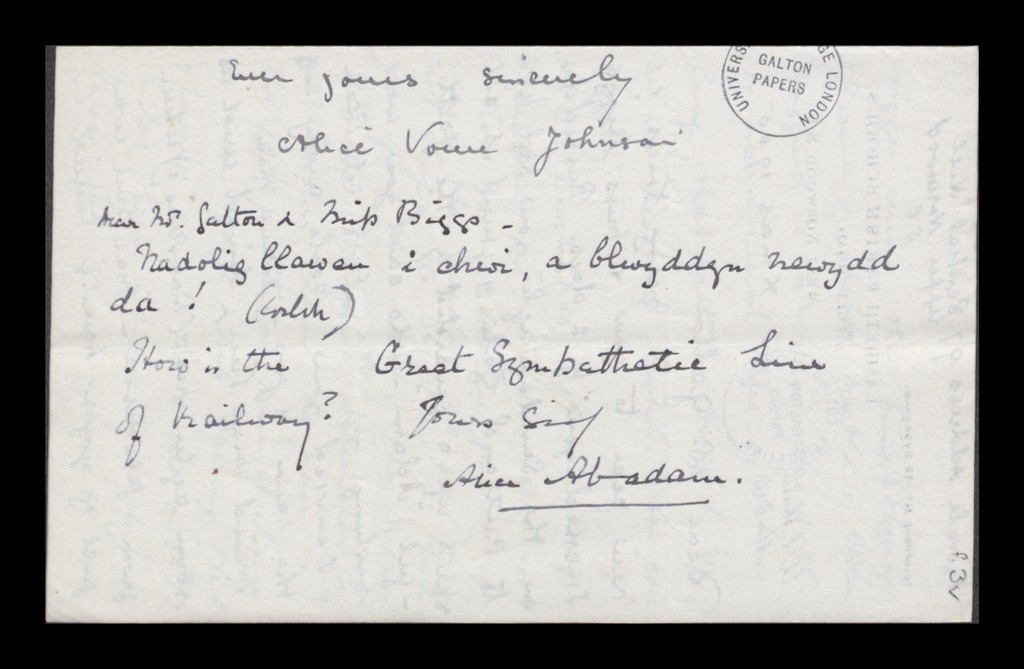 Ever yours sincerely
Alice Vowe Johnson
UNIVERS GE LONDON
GALTON
PAPERS
Dear Mr. Galton & Miss Biggs -
Nadolig llawen i chwi, a blwyddyn newydd
da! (Welsh)
How is the Great Sympathetic Line
of Railway? Yours Siny
Alice Abadam.
f.3v